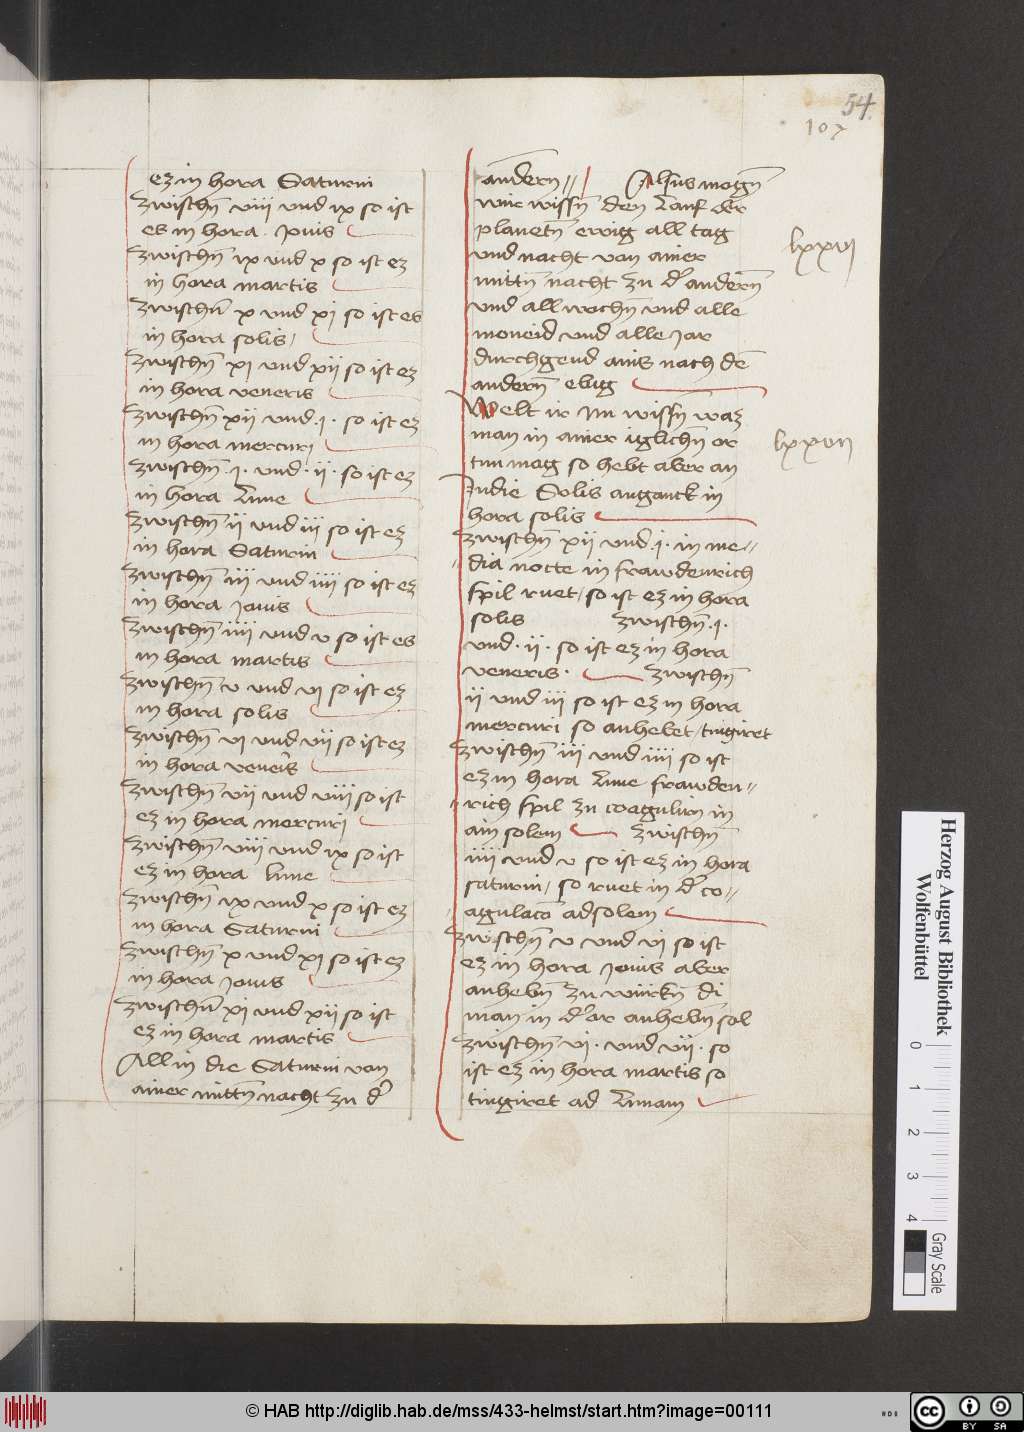 54.
107
ez in hora Saturni
Zwischn̄ viii vnd ix so ist
es in hora Jouis
Zwischn̄ ix vnd x so ist ez
in hora martis
Zwischn̄ x vnd xi so ist es
in hora solis
Zwischn̄ xi vnd xii so ist ez
in hora veneris
Zwischn̄ xii vnd ·i· so ist ez
in hora mercurj
Zwischn̄ ·i· vnd ·ii· so ist ez
in hora Lune
Zwischn̄ ii vnd iii so ist ez
in hora Saturni
Zwischn̄ iii vnd iiii so ist ez
in hora Jouis
Zwischn̄ iiii vnd v so ist es
in hora martis
Zwischn̄ v vnd vi so ist ez
in hora solis
Zwischn̄ vi vnd vii so ist ez
in hora veneris
Zwischn̄ vii vnd viii so ist
ez in hora mercurj
Zwischn̄ viii vnd ix so ist
ez in hora lune
Zwischn̄ ix vnd x so ist ez
in hora Saturni
Zwischn̄ x vnd xi so ist ez
in hora Jouis
Zwischn̄ xi vnd xii so ist
ez in hora martis
All in die Saturni von
ainer mittn̄ nacht zu d'
andern // Alsus mogn̄
wir wissn̄ den Lauf der
planetn̄ ewig all tag
vnd nacht von ainer
mittn̄ nacht zu d' andern̄
vnd all wochn̄ vnd alle
moneid vnd alle Jar
durchgend ains nach dē
andern̄ ebig
lxxvi
Welt ir nu wissn̄ waz
man in ainer iglichn̄ or
tun mag so hebt aber an
In die Solis auganck in
hora solis
lxxvii
Zwischn̄ xii vnd ·i· in me//
//dia nocte in frawdenrich
spil ruet / so ist ez in hora
solis Zwischn̄ ·i·
vnd ·ii· so ist ez in hora
veneris · Zwischn̄
ii vnd iii so ist ez in hora
mercurj so anhebet / tingiret
Zwischn̄ iii vnd iiii so ist
ez in hora Lune frawden//
//rich spil zu coagulirn in
ain solem Zwischn̄
iiii vnd v so ist ez in hora
saturni / so ruet in d' co//
//agulacō ad solem
Zwischn̄ v vnd vi so ist
ez in hora Jouis aber
anhebn̄ zu wurkn̄ di
man in d' or anhebn̄ sol
Zwischn̄ vi · vnd vii · so
ist ez in hora martis so
tingiret ad Lunam
Herzog August Bibliothek
Wolfenbüttel
0 1 2 3 4
Gray Scale
© HAB http://diglib.hab.de/mss/433-helmst/start.htm?image=00111
HAB
cc BY SA